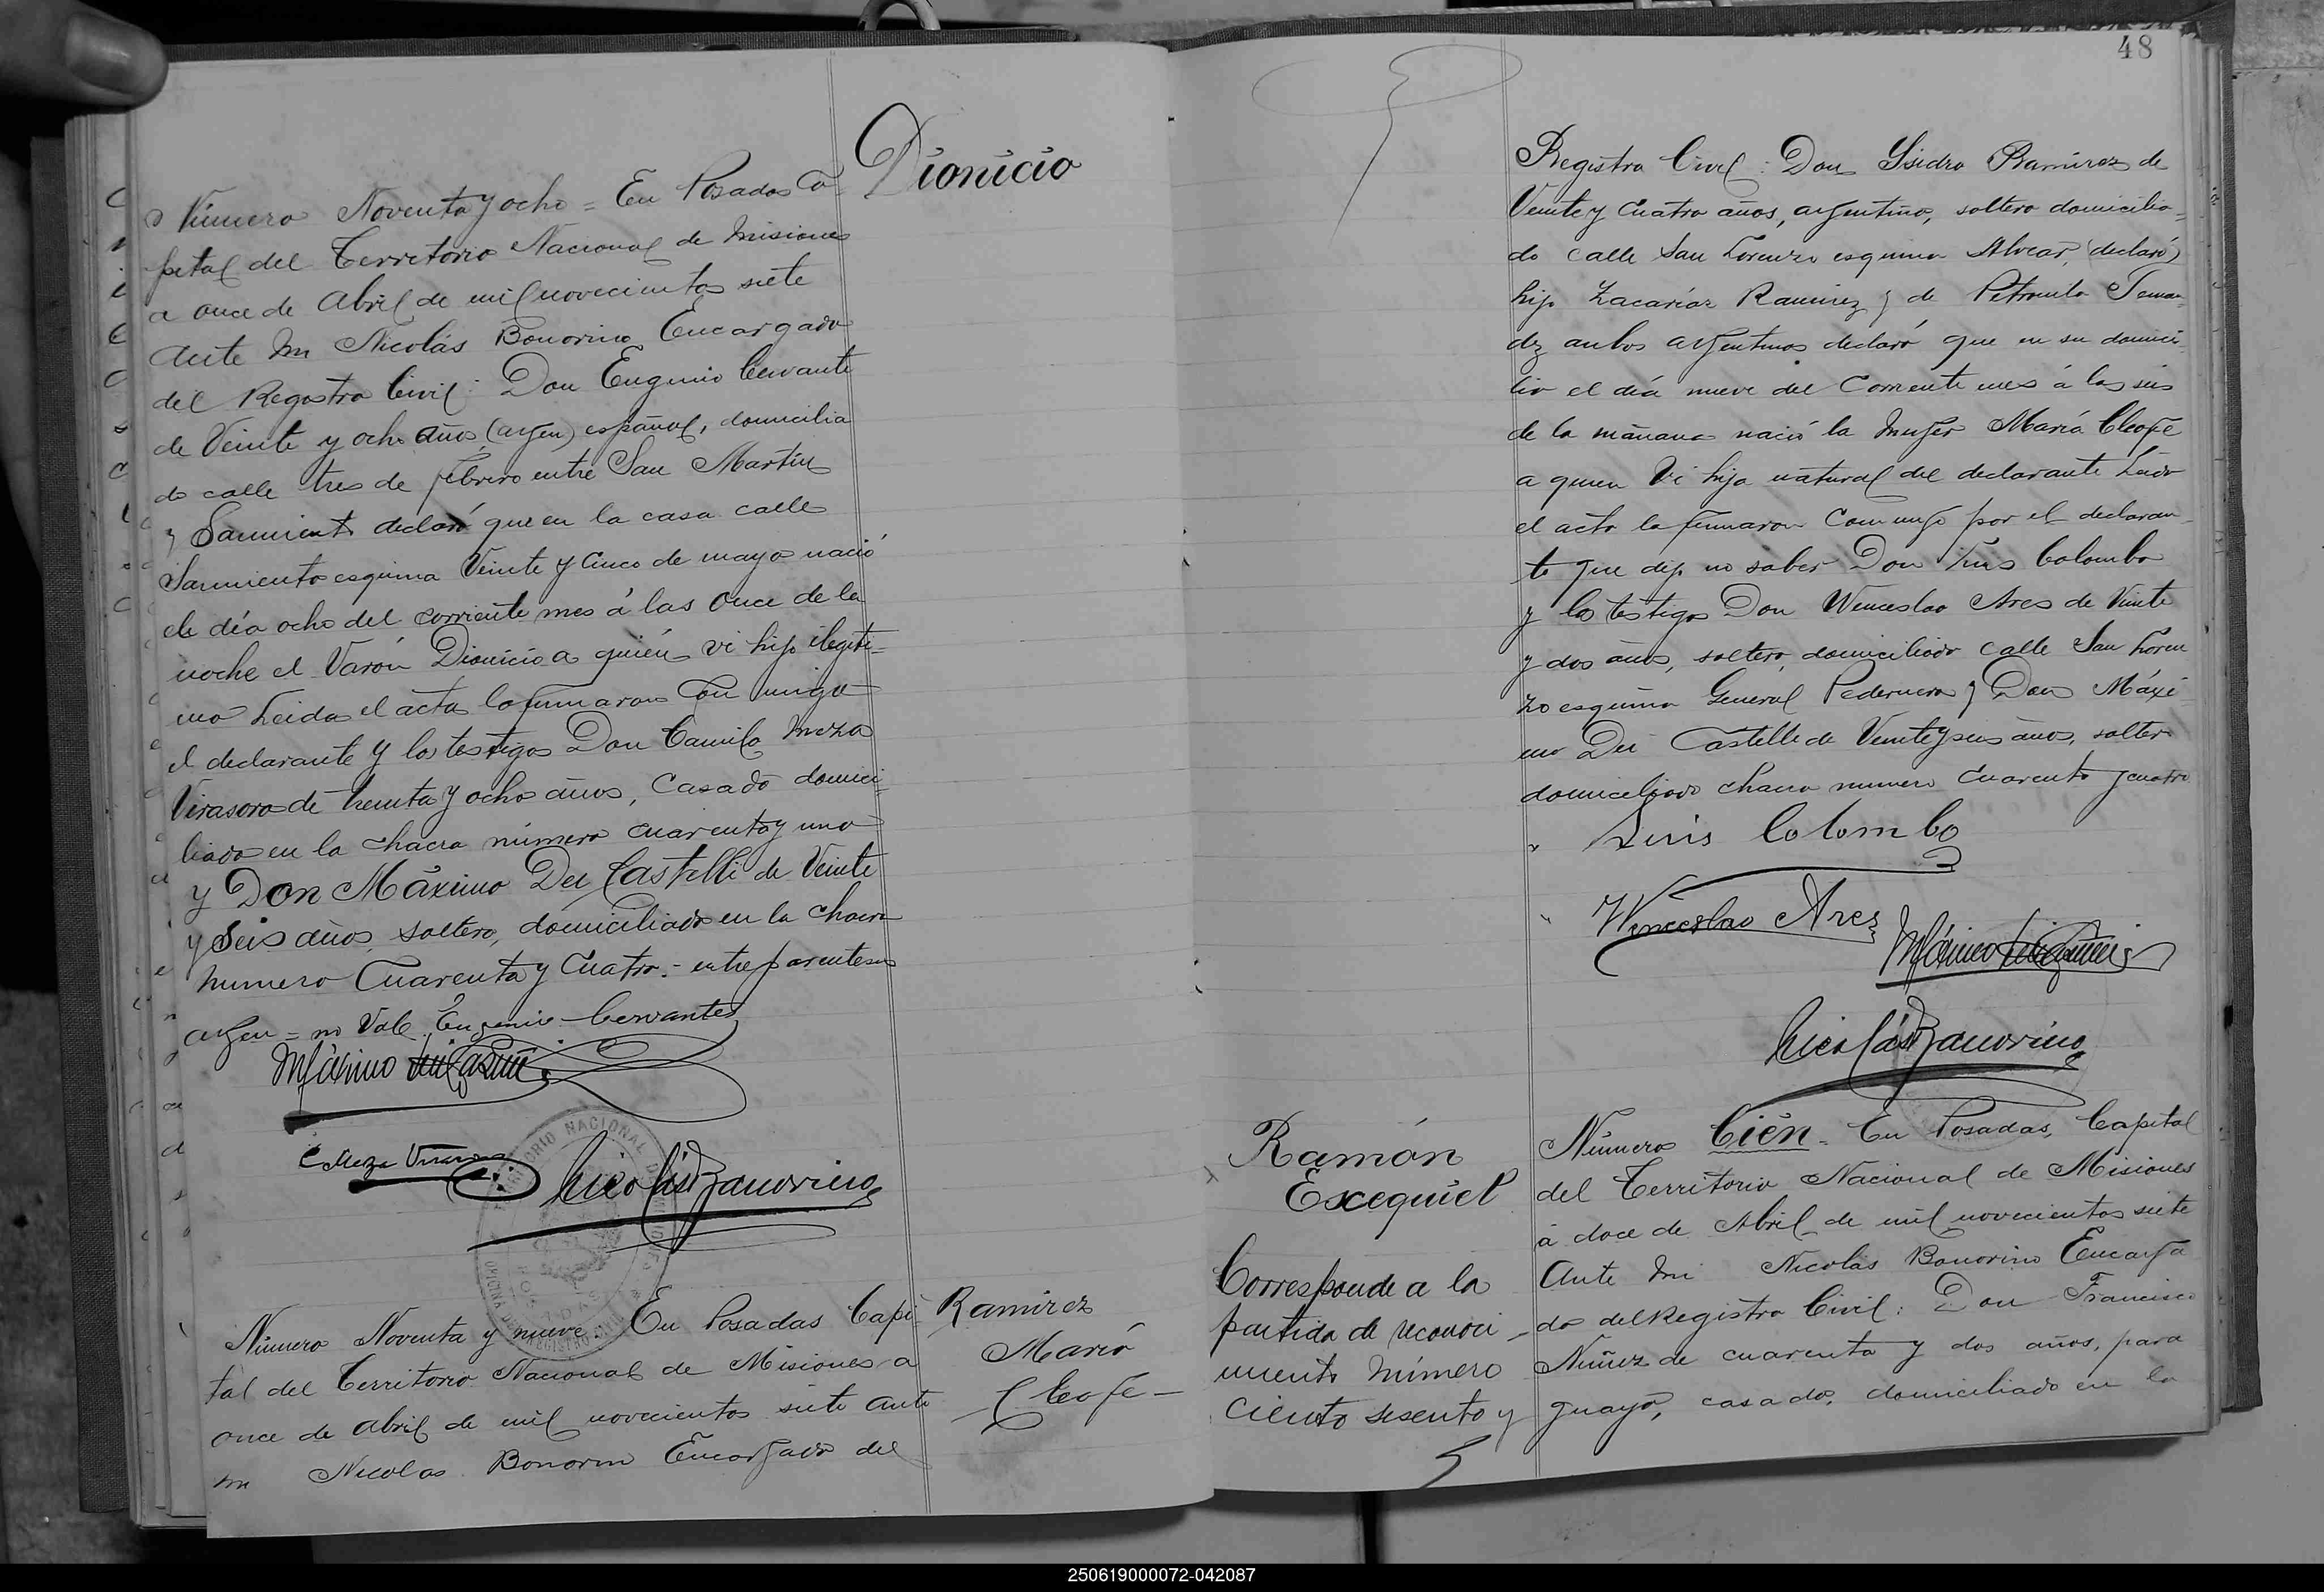 Dionicio
Número Noventa y ocho = En Posadas Ca-
pital del Territorio Nacional de Misiones
a once de Abril de mil novecientos siete
Ante mi Nicolás Bonorino Encargado
del Registro Civil: Don Eugenio Cervante
de Veinte y ocho años (argen) español, domicilia
do calle tres de febrero entre San Martin
y Sarmiento declaró que en la casa calle
Sarmiento esquina Veinte y Cinco de mayo nació
el día ocho del corriente mes á las Once de la
noche el Varón Dionicio a quién vi hijo ilegiti=
mo Leida el acta la firmaron con migo
el declarante y los testigos Don Camilo Meza
Virasoro de treinta y ocho años, Casado domici
liado en la chacra número cuarenta y uno
y Don Máximo Dei Castelli de Veinte
y Seis años, soltero, domiciliado en la chacra
numero Cuarenta y Cuatro.- entre parentesis
argen = no Vale Eugenio Cervantes
Máximo
C Meza Virasoro
Nicolás Bonorino
TERRITORIO NACIONAL DE MISIONES
Número Noventa y nueve En Posadas Capi-
tal del Territorio Nacional de Misiones a
once de Abril de mil novecientos siete ante
mi Nicolas Bonorin Encargado del
Ramirez
María
Cleofé -
48
Registro Civil: Don Ysidro Ramirez de
Veinte y Cuatro años, argentino, soltero domicilia=
do calle San Lorenzo esquina Alvear, (declaró)
hijo Zacarías Ramirez y de Petronila
ambos argentinos declaró que en su domici-
lio el día nueve del Corriente mes á las seis
de la mañana nació la Mujer María Cleofé
a quien Vi hija natural del declarante Leida
el acta la firmaron Con migo por el declaran-
te que dijo no saber Don Luis Colombo
y los testigos Don Wenceslao Ares de Veinte
y dos años, soltero, domiciliado Calle San Loren
zo esquina General Pedernera y Don Máxi-
mo Dei Castelli de Veinte y seis años, soltero
domiciliado chacra numero Cuarenta y cuatro
Luis Colombo
Wenceslao Ares
Máximo
Nicolás Bonorino
Ramón
Excequiel
Corresponde a la
partida de reconoci-
miento Número
Ciento sesenta y
Número Cién - En Posadas, Capital
del Territorio Nacional de Misiones
á doce de Abril de mil novecientos siete
Ante mi Nicolás Bonorino Encarga
do del Registro Civil: Don Francisco
Nuñez de cuarenta y dos años, para
guayo, casado, domiciliado en la
250619000072-042087